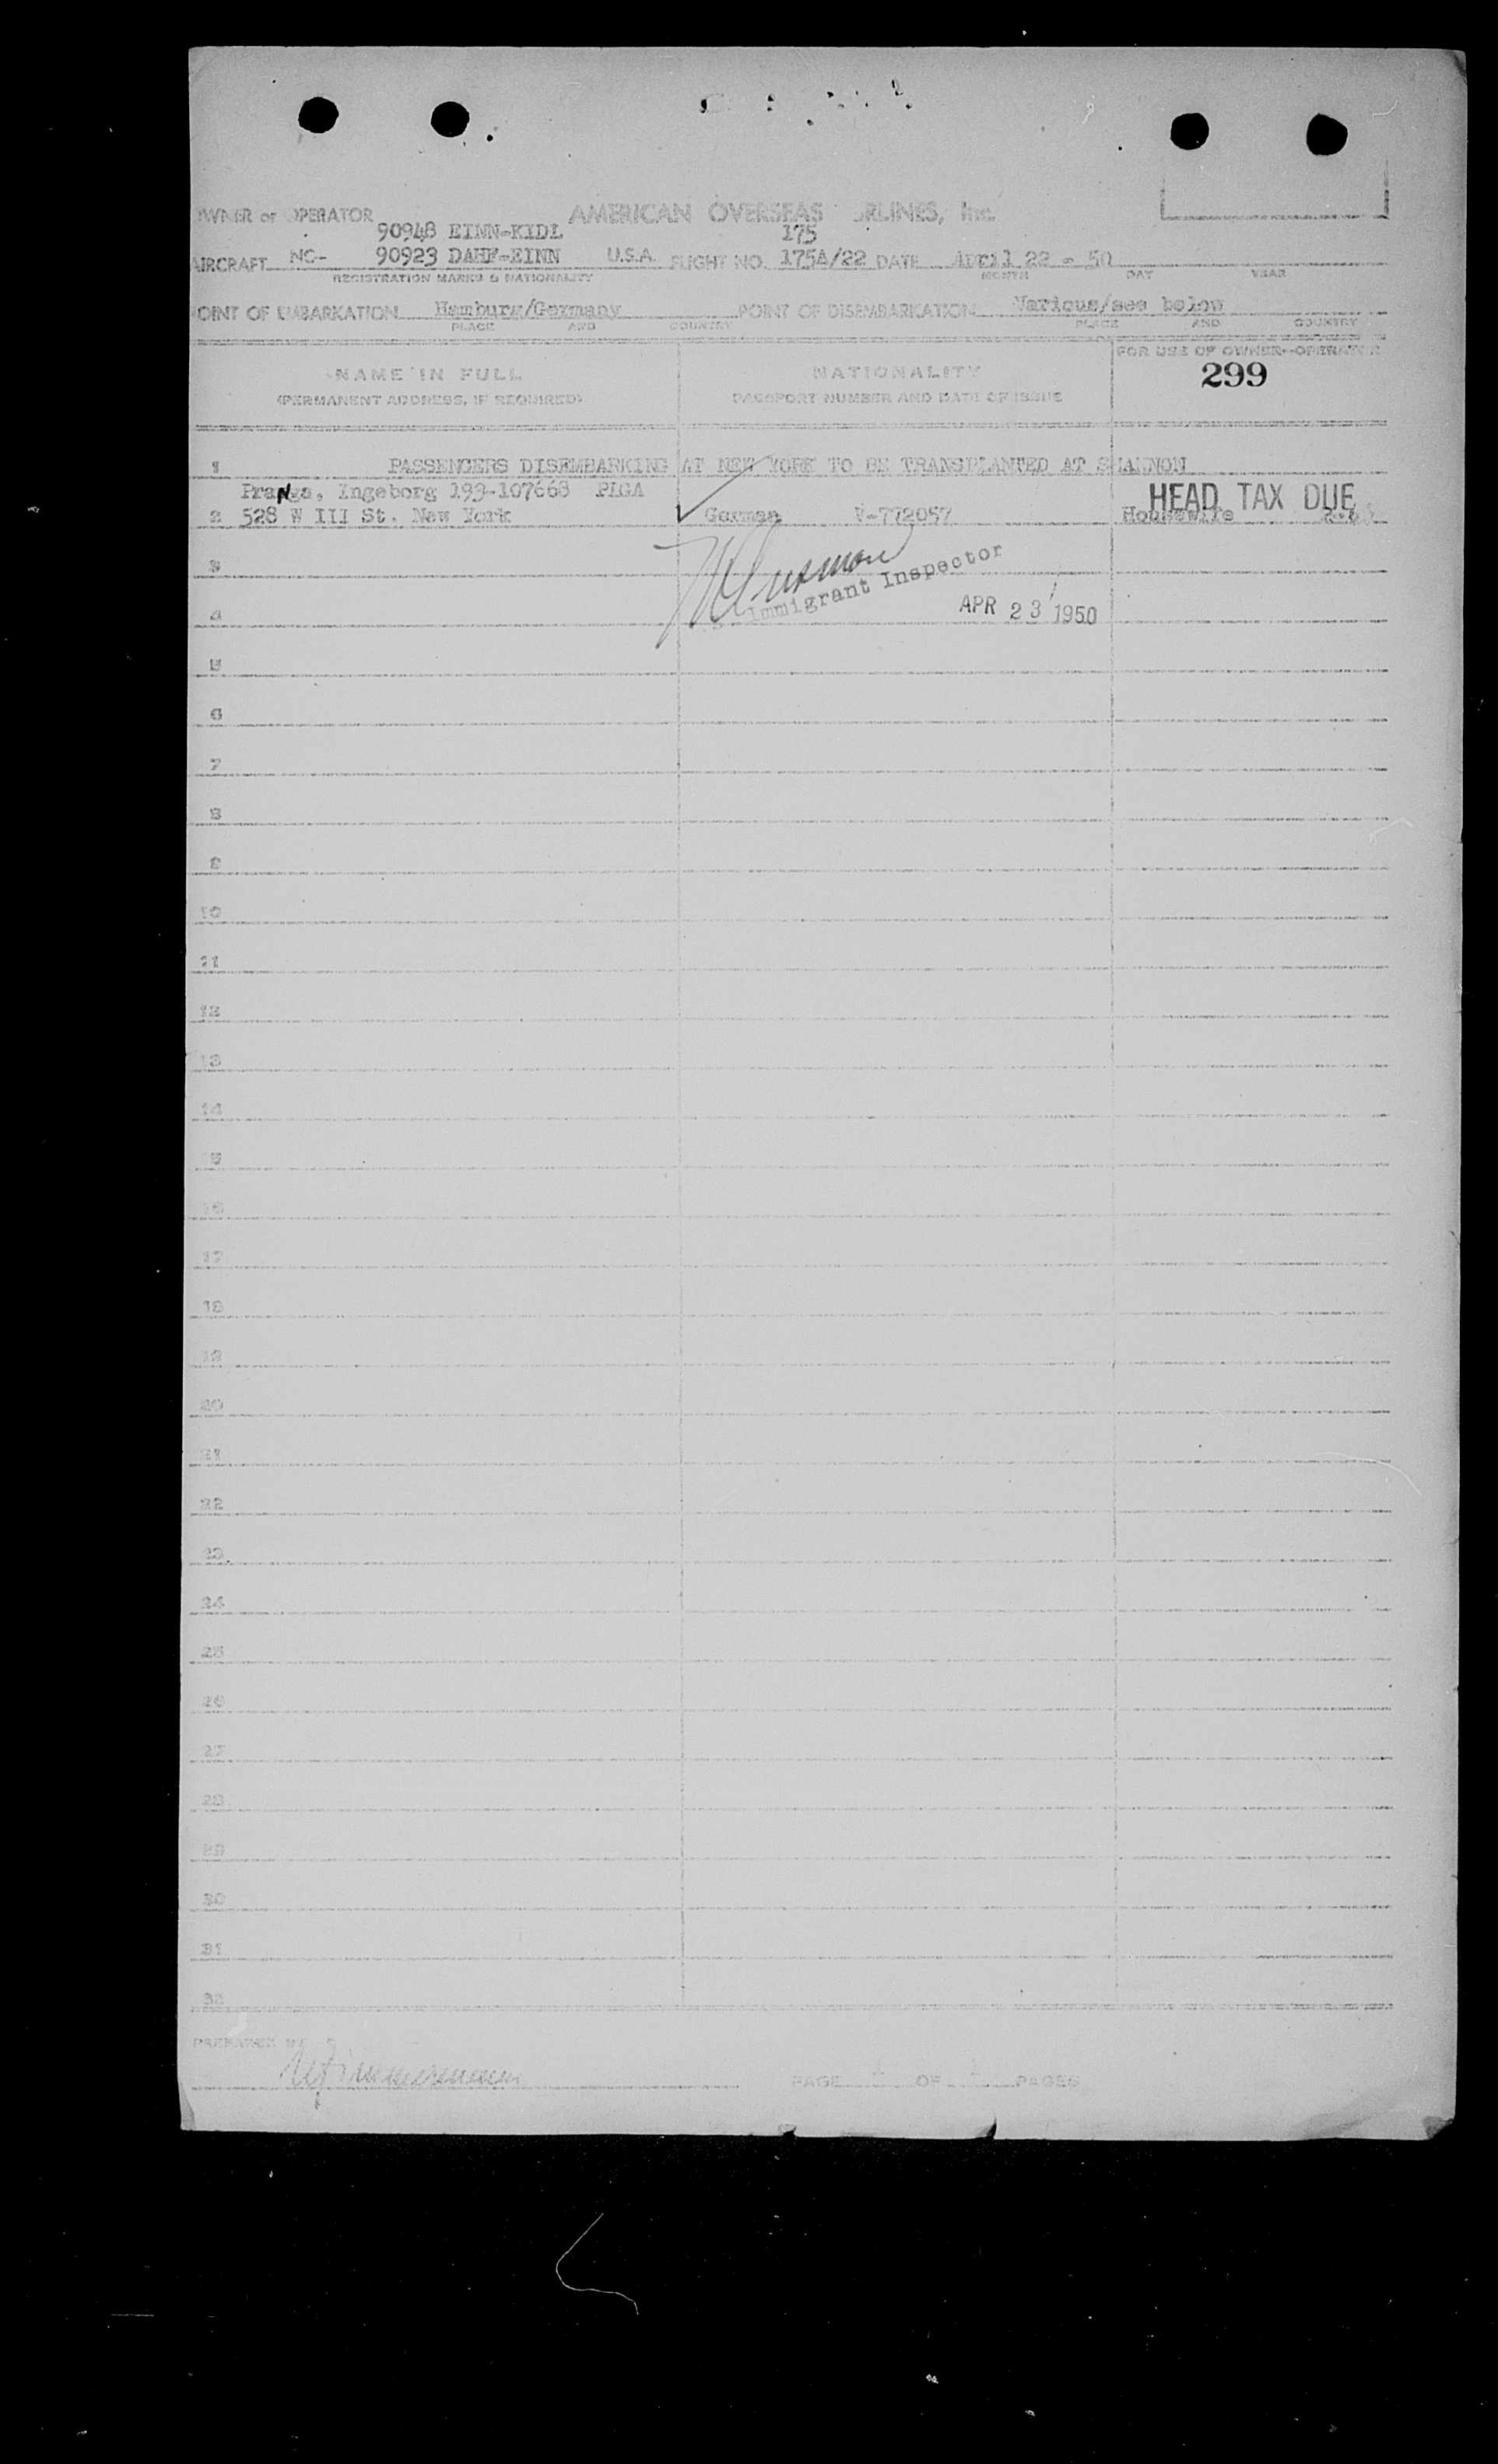 OWNER or OPERATOR AMERICAN OVERSEAS RLINES, Inc.
90948 EINN-KIDL 175
AIRCRAFT NC- 90923 DAHF-EINN U.S.A. FLIGHT NO. 175A/22 DATE April 22 - 50
REGISTRATION MARKS & NATIONALITY MONTH DAY YEAR
POINT OF EMBARKATION Hamburg/Germany POINT OF DISEMBARKATION Various/see below
PLACE AND COUNTRY PLACE AND COUNTRY
FOR USE OF OWNER-OPERATOR
NAME IN FULL NATIONALITY 299
(PERMANENT ADDRESS, IF REQUIRED) PASSPORT NUMBER AND DATE OF ISSUE
1 PASSENGERS DISEMBARKING AT NEW YORK TO BE TRANSPLANTED AT SHANNON
PraNga, Ingeborg 193-107668 PAGA HEAD TAX DUE
2 528 W III St. New York German V-772057 Housewife
3
Immigrant Inspector
4 APR 23 1950
5
6
7
8
9
10
11
12
13
14
15
16
17
18
19
20
21
22
23
24
25
26
27
28
29
30
31
32
PREPARED BY
PAGE OF PAGES